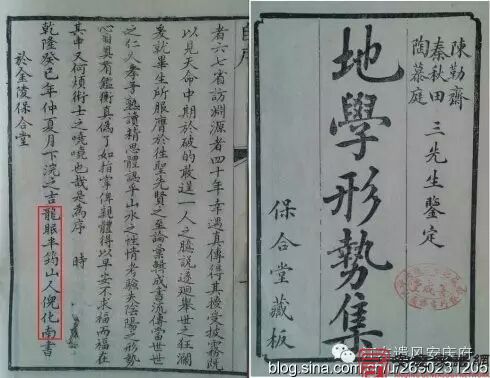 陳勤齋
秦秋田
陶慕庭
三先生鑒定
地學形勢集
保合堂藏板
者六七省訪淵源者四十年幸遇真傳得其 受披霧院
以見天命中期於破的敢逞一人之臆說 廻舉世之狂瀾
爰就畢生所服膺於往聖先賢之至論彙輯成書流傳當世世
之仁人孝子熟讀精思體認乎山水之性情考驗夫陰陽之形勢
心目 有鑑衡真偽了如指掌俾親體得以早安不求福而福在
其中又何煩術士之嘵嘵也哉是為序 時
乾隆癸巳年仲夏月下浣之吉龍眠半筠山人倪化南書
於金陵保合堂
遺风安庆府
blog.sina.com.cn/u/2650231205